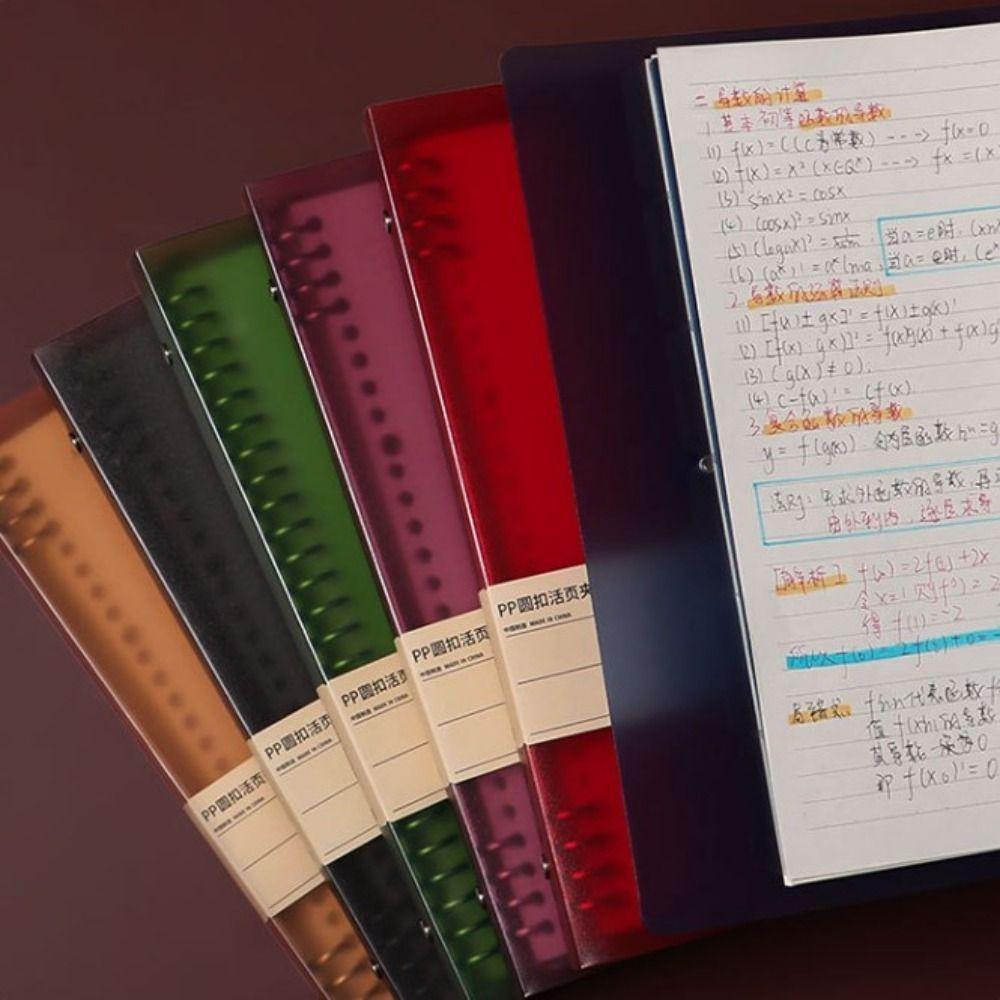 PP圆扣活页
中国制造 MADE IN CHINA
PP圆扣活页
中国制造 MADE IN CHINA
PP圆扣活页
中国制造 MADE IN CHINA
PP圆扣活页
中国制造 MADE IN CHINA
PP圆扣活页夹
中国制造 MADE IN CHINA
二 导数的计算
1. 基本初等函数的导数
(1) f(x)=C(C为常数) ---> f(x=0
(2) f(x)=x²(x∈Q*) ---> fx=(x
(3) sinx²=cosx
(4) (cosx)²=sinx
(5) (logax)²= 当a=e时, (xn
(6) (aˣ)'=aˣlna, 当a=e时, (e
2. 导数的运算法则
(1) [f(x)±gx]'=f'(x)±g(x)'
(2) [f(x)·gx)]²=f(x)g(x)+f(x)g
(3) (g(x)≠0);
(4) c-f(x)'=Cf(x).
3. 复合函数的导数
y=f(g(x)) 令内层函数 =g
法则: 先求外函数的导数, 再
由外到内, 逐层求导
f(x)=2f(x)+2x
令x=1 则f'(1)=2
得 f(1)=-2
代表函数f
值 f(x)的导数
其导数一定为0
即 f(x₀)'=0